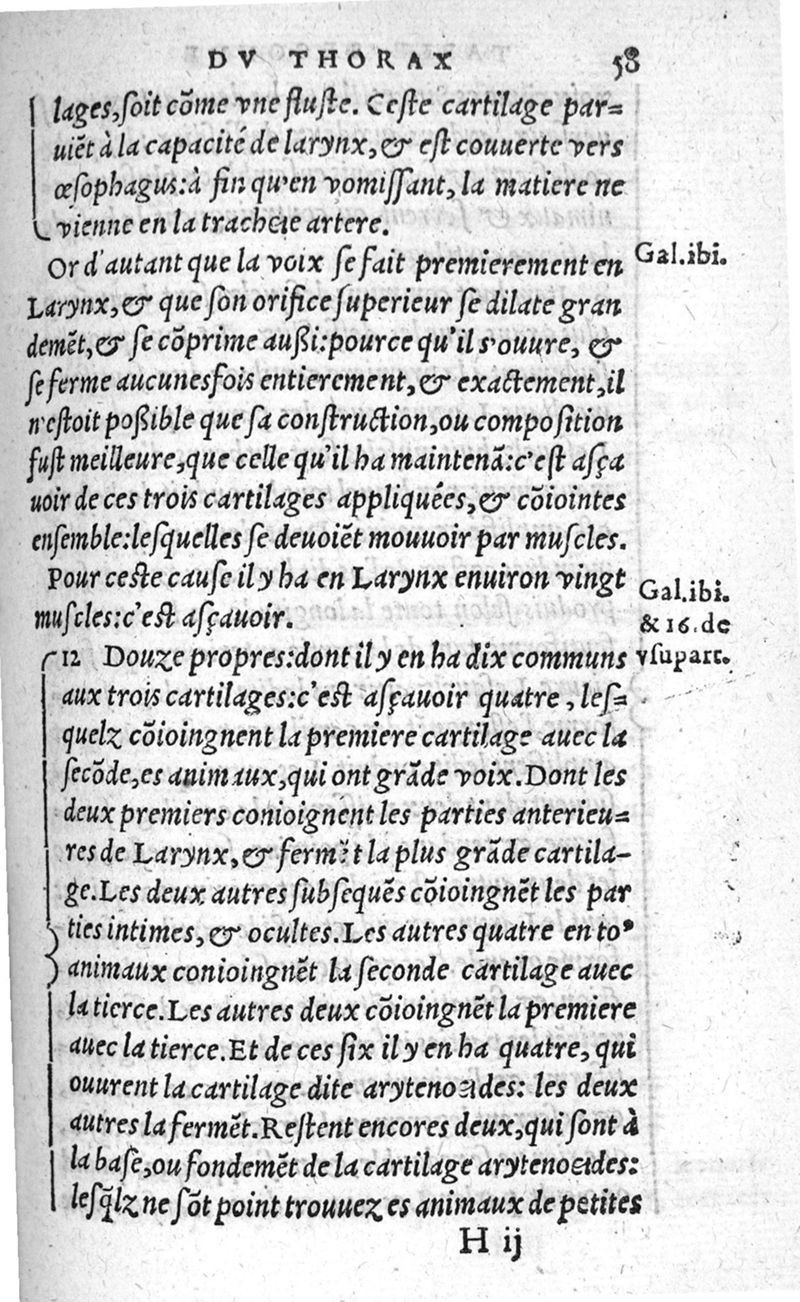 DV THORAX 58
lages,ſoit cõme vne fluſte. Ceſte cartilage par=
uiẽt à la capacité de larynx,& eſt couuerte vers
œſophagus:à fin qu'en vomiſſant, la matiere ne
vienne en la trachee artere.
Or d'autant que la voix ſe fait premierement en
Gal.ibi.
Larynx,& que ſon orifice ſuperieur ſe dilate gran
demẽt,& ſe cõprime außi:pource qu'il s'ouure, &
ſe ferme aucunesfois entierement,& exactement,il
n'eſtoit poßible que ſa conſtruction,ou compoſition
fuſt meilleure,que celle qu'il ha maintenã:c'eſt aſça
uoir de ces trois cartilages appliquées,& cõiointes
enſemble:leſquelles ſe deuoiẽt mouuoir par muſcles.
Pour ceſte cauſe il y ha en Larynx enuiron vingt
Gal.ibi.
muſcles:c'eſt aſçauoir.
& 16.de
12 Douze propres:dont il y en ha dix communs
vſupart.
aux trois cartilages:c'eſt aſçauoir quatre, leſ=
quelz cõioingnent la premiere cartilage auec la
ſecõde,es animaux,qui ont grãde voix.Dont les
deux premiers conioignent les parties anterieu=
res de Larynx,& fermẽt la plus grãde cartila-
ge.Les deux autres ſubſequẽs cõioingnẽt les par
ties intimes,& ocultes.Les autres quatre en toꝰ
animaux conioingnẽt la ſeconde cartilage auec
la tierce.Les autres deux cõioingnẽt la premiere
auec la tierce.Et de ces ſix il y en ha quatre, qui
ouurent la cartilage dite arytenoeides: les deux
autres la fermẽt.Reſtent encores deux,qui ſont à
la baſe,ou fondemẽt de la cartilage arytenoeides:
leſq̃lz ne ſõt point trouuez es animaux de petites
H ij